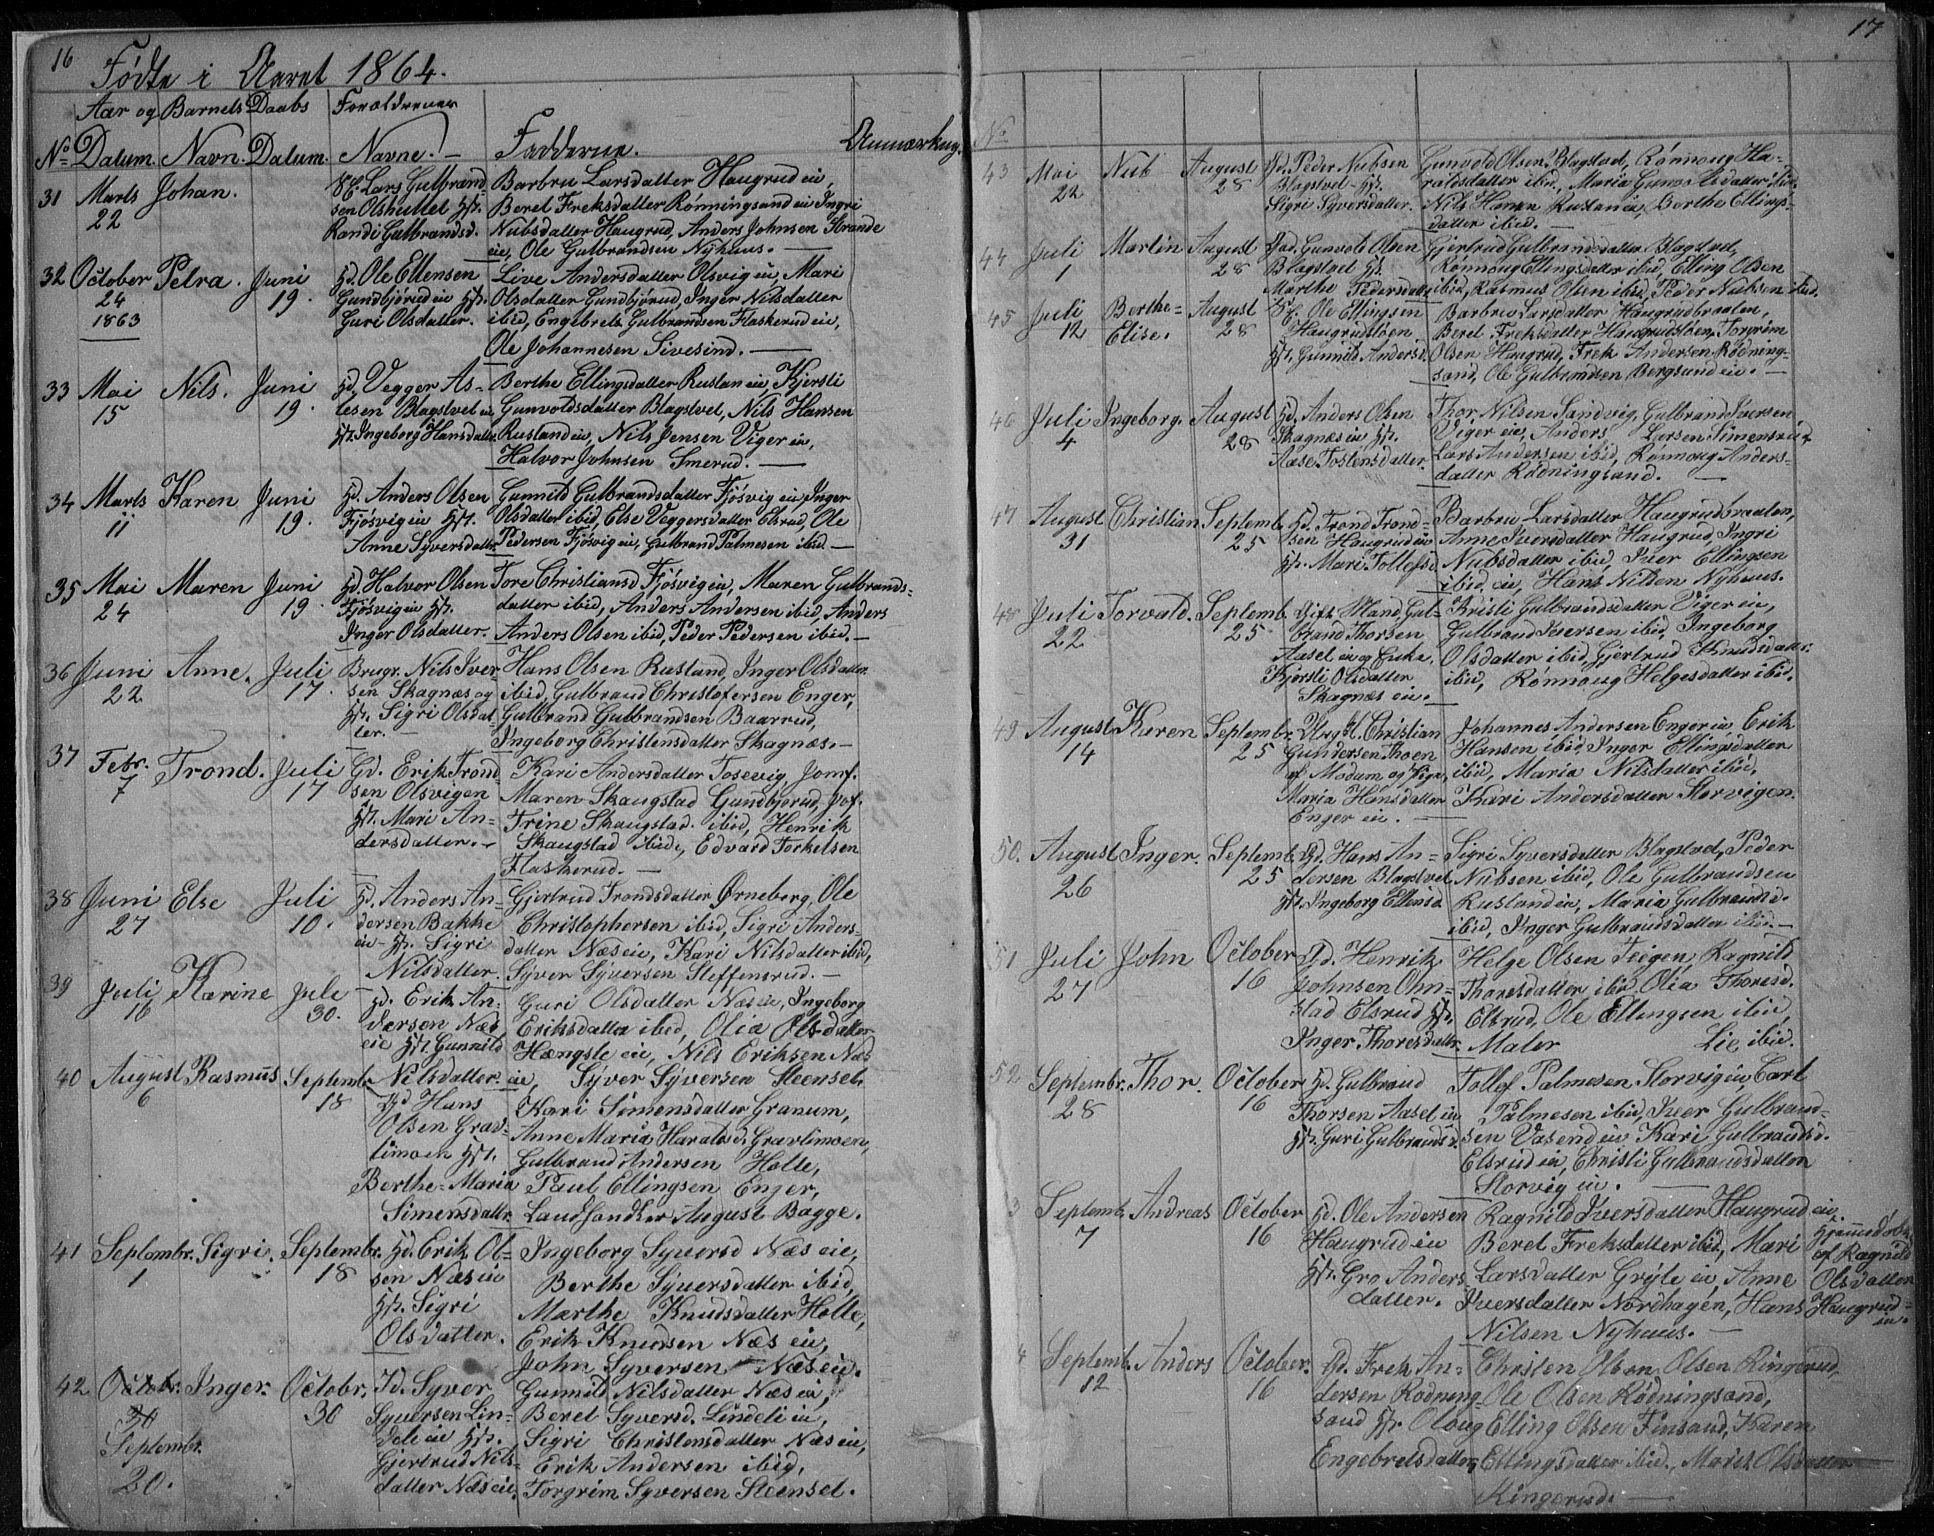 16
Fødte i Aaret 1864.
Aar og Barnets Daabs Forældrenes
No Datum. Navn. Datum. Navne. Fadderne. Anmærkng.
31 Marts 22 Johan.
Lars Gulbrand-
sen Olshullet Hst.
Randi Gulbrandsd.
Barbru Larsdatter Haugrud eie,
Beret Freksdatter Rønningsand eie Ingri
Nubsdatter Haugrud, Anders Johnsen Strande
eie, Ole Gulbrandsen Nyhuus.
32 October 24 1863 Petra. Juni 19.
Hd. Ole Ellensen
Gundbjörud eie Hst.
Guri Olsdatter.
Live Andersdatter Olsvig eie, Mari
Olsdatter Gundbjörud, Inger Nilsdatter
ibid, Engebret Gulbrandsen Flaskerud eie,
Ole Johannesen Sivesind.
33 Mai 15 Nils. Juni 19.
Hd. Vegger As-
lesen Blagstvet eie
Hst. Ingeborg Hansdatter
Berthe Ellingsdatter Rustan eie, Kjersti
Gunvoldsdatter Blagstvet, Nils Hansen
Rusland eie, Nils Jensen Viger eie,
Halvor Johnsen Smerud.
34 Marts 11 Karen Juni 19.
Hd. Anders Olsen
Fjösvig eie Hst.
Anne Syversdatter
Gunnild Gulbrandsdatter Fjösvig eie, Inger
Olsdatter ibid, Else Veggersdatter Elsrud, Ole
Pedersen Fjösvig eie, Gulbrand Palmesen ibid.
35 Mai 24 Maren Juni 19.
Hd. Halvor Olsen
Fjösvig eie Hst.
Inger Olsdatter.
Tore Christiansd Fjösvig eie, Maren Gulbrands-
datter ibid, Anders Andersen ibid, Anders
Anders Olsen ibid, Peder Pedersen ibid.
36 Juni 22 Anne. Juli 17.
Brugr. Nils Iver-
sen Skagnæs og
Hst. Sigri Olsdat-
ter.
Hans Olsen Rusland, Inger Olsdatter
ibid, Gulbrand Christofersen Enger,
Gulbrand Gulbrandsen Baarrud,
Ingeborg Christensdatter Skagnæs.
37 Febr. 7 Trond. Juli 17
Gd. Erik Trond-
sen Olsvigen
Hst. Mari An-
dersdatter.
Kari Andersdatter Tosevig, Jomf.
Maren Skaugstad Gundbjørud, Jof.
Trine Skaugstad ibid, Henrik
Skaugstad ibid, Edvard Torkelsen
Flaskerud.
38 Juni 27 Else Juli 10.
Hd. Anders An-
dersen Bakke
eie Hst. Sigri
Nilsdatter.
Gjertrud Trondsdatter Ørneberg, Ole
Christophersen ibid, Sigri Anders-
datter Næs eie, Kari Nilsdatter ibid,
Syver Syversen Steffensrud.
39 Juli 16 Karine Juli 30.
Hd. Erik An-
dersen Næs
eie Hst. Gunnild
Nilsdatter.
Guri Olsdatter Næs eie, Ingeborg
Eriksdatter ibid, Olia Olsdatter
Hængsle eie, Nils Eriksen Næs
eie, Syver Syversen Steensel.
40 August 6 Rasmus Septembr. 18
Hd Hans
Olsen Grav-
limoen Hst.
Berthe-Maria
Simensdatter
Kari Simensdatter Granum,
Anne Maria Haralsd. Gravlimoen,
Gulbrand Andersen Holte,
Paul Ellingsen Enger,
Landhandler August Bagge.
41 Septembr. 1 Sigri. Septembr. 18
Hd. Erik Ol-
sen Næs eie
Hst. Sigri
Olsdatter.
Ingeborg Syversd Næs eie,
Berthe Syversdatter ibid,
Marthe Knudsdatter Holte,
Erik Knudsen Næs eie,
John Syversen Næs eie.
42 Octobr. 30 Septembr. 20. Inger. Octobr. 30
Hd. Syver
Syversen Lin-
deli eie Hst.
Gjertrud Nils-
datter Næs eie.
Gunnild Nilsdatter Næs eie,
Beret Syversd. Lindeli eie,
Sigri Christensdatter Næs eie,
Erik Andersen ibid,
Torgrim Syversen Steensel.
17
No
43 Mai 22 Nub August 28
Gd. Peder Nubsen
Blagstvet Hst.
Sigri Syversdatter.
Gunvold Olsen Blagstvet, Rønnoug Ha-
raldsdatter ibid, Maria Gunvoldsdatter ibid,
Nils Hansen Rustan eie, Berthe Ellings-
datter ibid.
44 Juli 1 Martin August 28
Gd. Gunvold Olsen
Blagstvet Hst.
Marthe Pedersdatter
Gjertrud Gulbrandsdatter Blagstvet,
Rønnoug Ellingsdatter ibid, Elling Olsen
ibid, Rasmus Olsen ibid, Peder Nubsen ibid.
45 Juli 12 Berthe-Elise. August 28
Ole Ellingsen
Haugrudsløen
Hst. Gunnild Andersd.
Barbru Larsdatter Haugrudbraaten,
Beret Freksdatter Haugrudsløen, Torgrim
Olsen Haugrud, Frek Andersen Rødning-
sand, Ole Gulbrandsen Bergsund eie.
46 Juli 4 Ingeborg. August 28
Hd. Anders Olsen
Skagnæs eie Hst.
Aase Tostensdatter
Thor Nilsen Sandvig, Gulbrand Iversen
Viger eie, Anders Larsen Simensrud
Lars Andersen ibid, Rønnoug Anders-
datter Rødningsand.
47 August 31 Christian Septemb. 25
Hd. Trond Trond-
sen Haugrud eie
Hst. Mari Tollefsd.
Barbru Larsdatter Haugrudbraaten,
Anne Iversdatter Haugrud, Ingri
Nubsdatter ibid, Iver Ellingsen
ibid eie, Hans Nilsen Nyhuus.
48 Juli 22 Torvald. Septemb. 25
Gift Mand Gul-
brand Thorsen
Aasel eie og Enke
Kjersti Olsdatter
Skagnæs eie.
Kristi Gulbrandsdatter Viger eie,
Gulbrand Iversen ibid, Ingeborg
Olsdatter ibid, Gjertrud Knudsdatter
ibid, Rønnoug Helgesdatter ibid.
49 August 14 Karen Septembr. 25
Ungk. Christian
Gundersen Thoen
af Modum og Pige
Maria Hansdatter
Enger eie.
Johannes Andersen Enger eie, Erik
Hansen ibid, Inger Ellingsdatter
ibid, Maria Nilsdatter ibid,
Kari Andersdatter Storvigen.
50. August 26 Inger. Septemb. 25
Gd. Hans An-
dersen Blagstvet
Hst. Ingeborg Ellensd
Sigri Syversdatter Blagstvet, Peder
Nubsen ibid, Ole Gulbrandsen
Rusland eie, Maria Gulbrandsd.
ibid, Inger Gulbrandsdatter ibid.
51 Juli 27 John October 16
Gd. Henrik
Johnsen Ohn-
stad Elsrud Hst.
Inger Thoresdatter.
Helge Olsen Teigen, Ragnild
Thoresdatter ibid, Olia Thoresd.
Elsrud, Ole Ellingsen ibid,
Maler Lie ibid.
52 Septembr. 28 Thor. October 16
Hd. Gulbrand
Thorsen Aasel eie
Hst. Guri Gulbrandsd.
Tollef Palmesen Storvig eie, Carl
Palmesen ibid, Iver Gulbrand-
sen Vasend eie, Kari Gulbrandsd.
Elsrud eie, Christi Gulbrandsdatter
Storvig eie.
3 Septemb. 7 Andreas October 16
Hd. Ole Andersen
Haugrud eie
Hst. Gro Anders-
datter.
Ragnild Iversdatter Haugrud eie,
Beret Freksdatter ibid, Mari
Larsdatter Gryte eie, Anne
Iversdatter Nordhagen, Hans
Nilsen Nyhuus.
Hjemmedöbt
af Ragnild
Olsdatter
Haugrud-
eie.
4 Septemb. 12 Anders October. 16
Gd. Frek An-
dersen Rødning-
sand Hst. Oloug
Engebretsdatter,
Christen Olsen Olsen Ringerud,
Ole Olsen Rødningsand,
Elling Olsen Finsand, Karen
Ellingsdatter ibid., Marit Olsdatter
Ringerud.